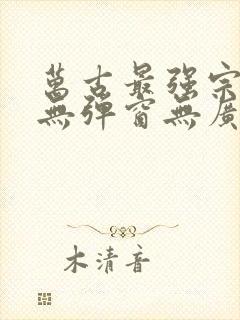 萬古最强宗
無彈窗無廣
木清音